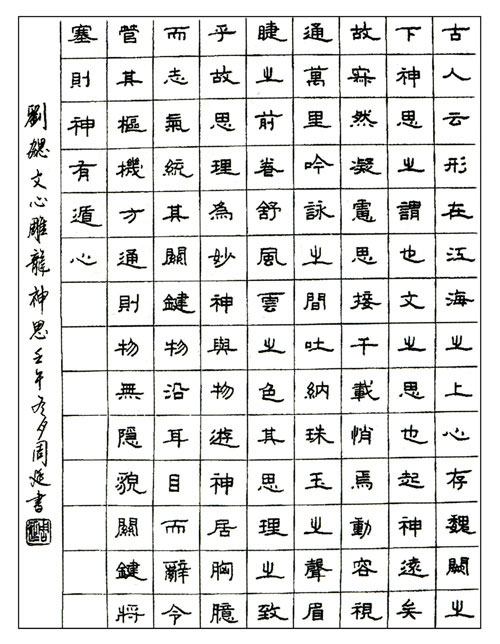 古人云形在江海之上心存魏闕之
下神思之謂也文之思也起神遠矣
故寂然凝慮思接千載悄焉動容視
通萬里吟詠之間吐納珠玉之聲眉
睫之前卷舒風雲之色其思理之致
乎故思理為妙神與物遊神居胸臆
而志氣統其關鍵物沿耳目而辭令
管其樞機方通則物無隱貌關鍵將
塞則神有遁心
劉勰文心雕龍神思壬午冬夕周延書